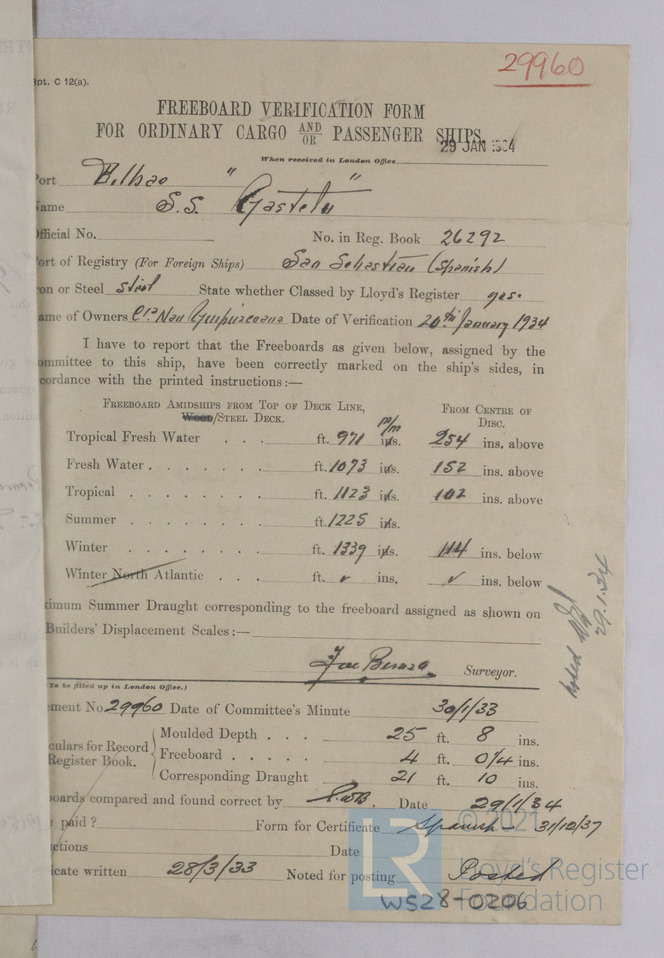 29960
Rpt. C 12(a).
FREEBOARD VERIFICATION FORM
FOR ORDINARY CARGO AND/OR PASSENGER SHIPS.
29 JAN 1934
When received in London Office
Port Bilbao
Name S.S. "Gastelu"
Official No. No. in Reg. Book 26292
Port of Registry (For Foreign Ships) San Sebastian (Spanish)
Iron or Steel steel State whether Classed by Lloyd's Register yes.
Name of Owners Cia Nav Guipuzcoana Date of Verification 20th January 1934
I have to report that the Freeboards as given below, assigned by the
Committee to this ship, have been correctly marked on the ship's sides, in
accordance with the printed instructions:—
FREEBOARD AMIDSHIPS FROM TOP OF DECK LINE, FROM CENTRE OF
Wood/STEEL DECK. m/m DISC.
Tropical Fresh Water . . . ft. 971 ins. 254 ins. above
Fresh Water . . . . . . ft. 1073 ins. 152 ins. above
Tropical . . . . . . . ft. 1123 ins. 102 ins. above
Summer . . . . . . . ft. 1225 ins.
Winter . . . . . . . ft. 1339 ins. 114 ins. below
Winter North Atlantic . . . ft. ✓ ins. ✓ ins. below
Maximum Summer Draught corresponding to the freeboard assigned as shown on
Builders' Displacement Scales:—
Noted 29.1.34
Surveyor.
(To be filled up in London Office.)
ment No. 29960 Date of Committee's Minute 30/1/33
culars for Record Register Book.
Moulded Depth . . . 25 ft. 8 ins.
Freeboard . . . . . 4 ft. 0 1/4 ins.
Corresponding Draught 21 ft. 10 ins.
boards compared and found correct by Date 29/1/34
paid? Form for Certificate Spanish – 31/12/37
ctions Date
icate written 28/3/33 Noted for posting Posted
© 2021
LR
Lloyd's Register
Foundation
WS28-0206